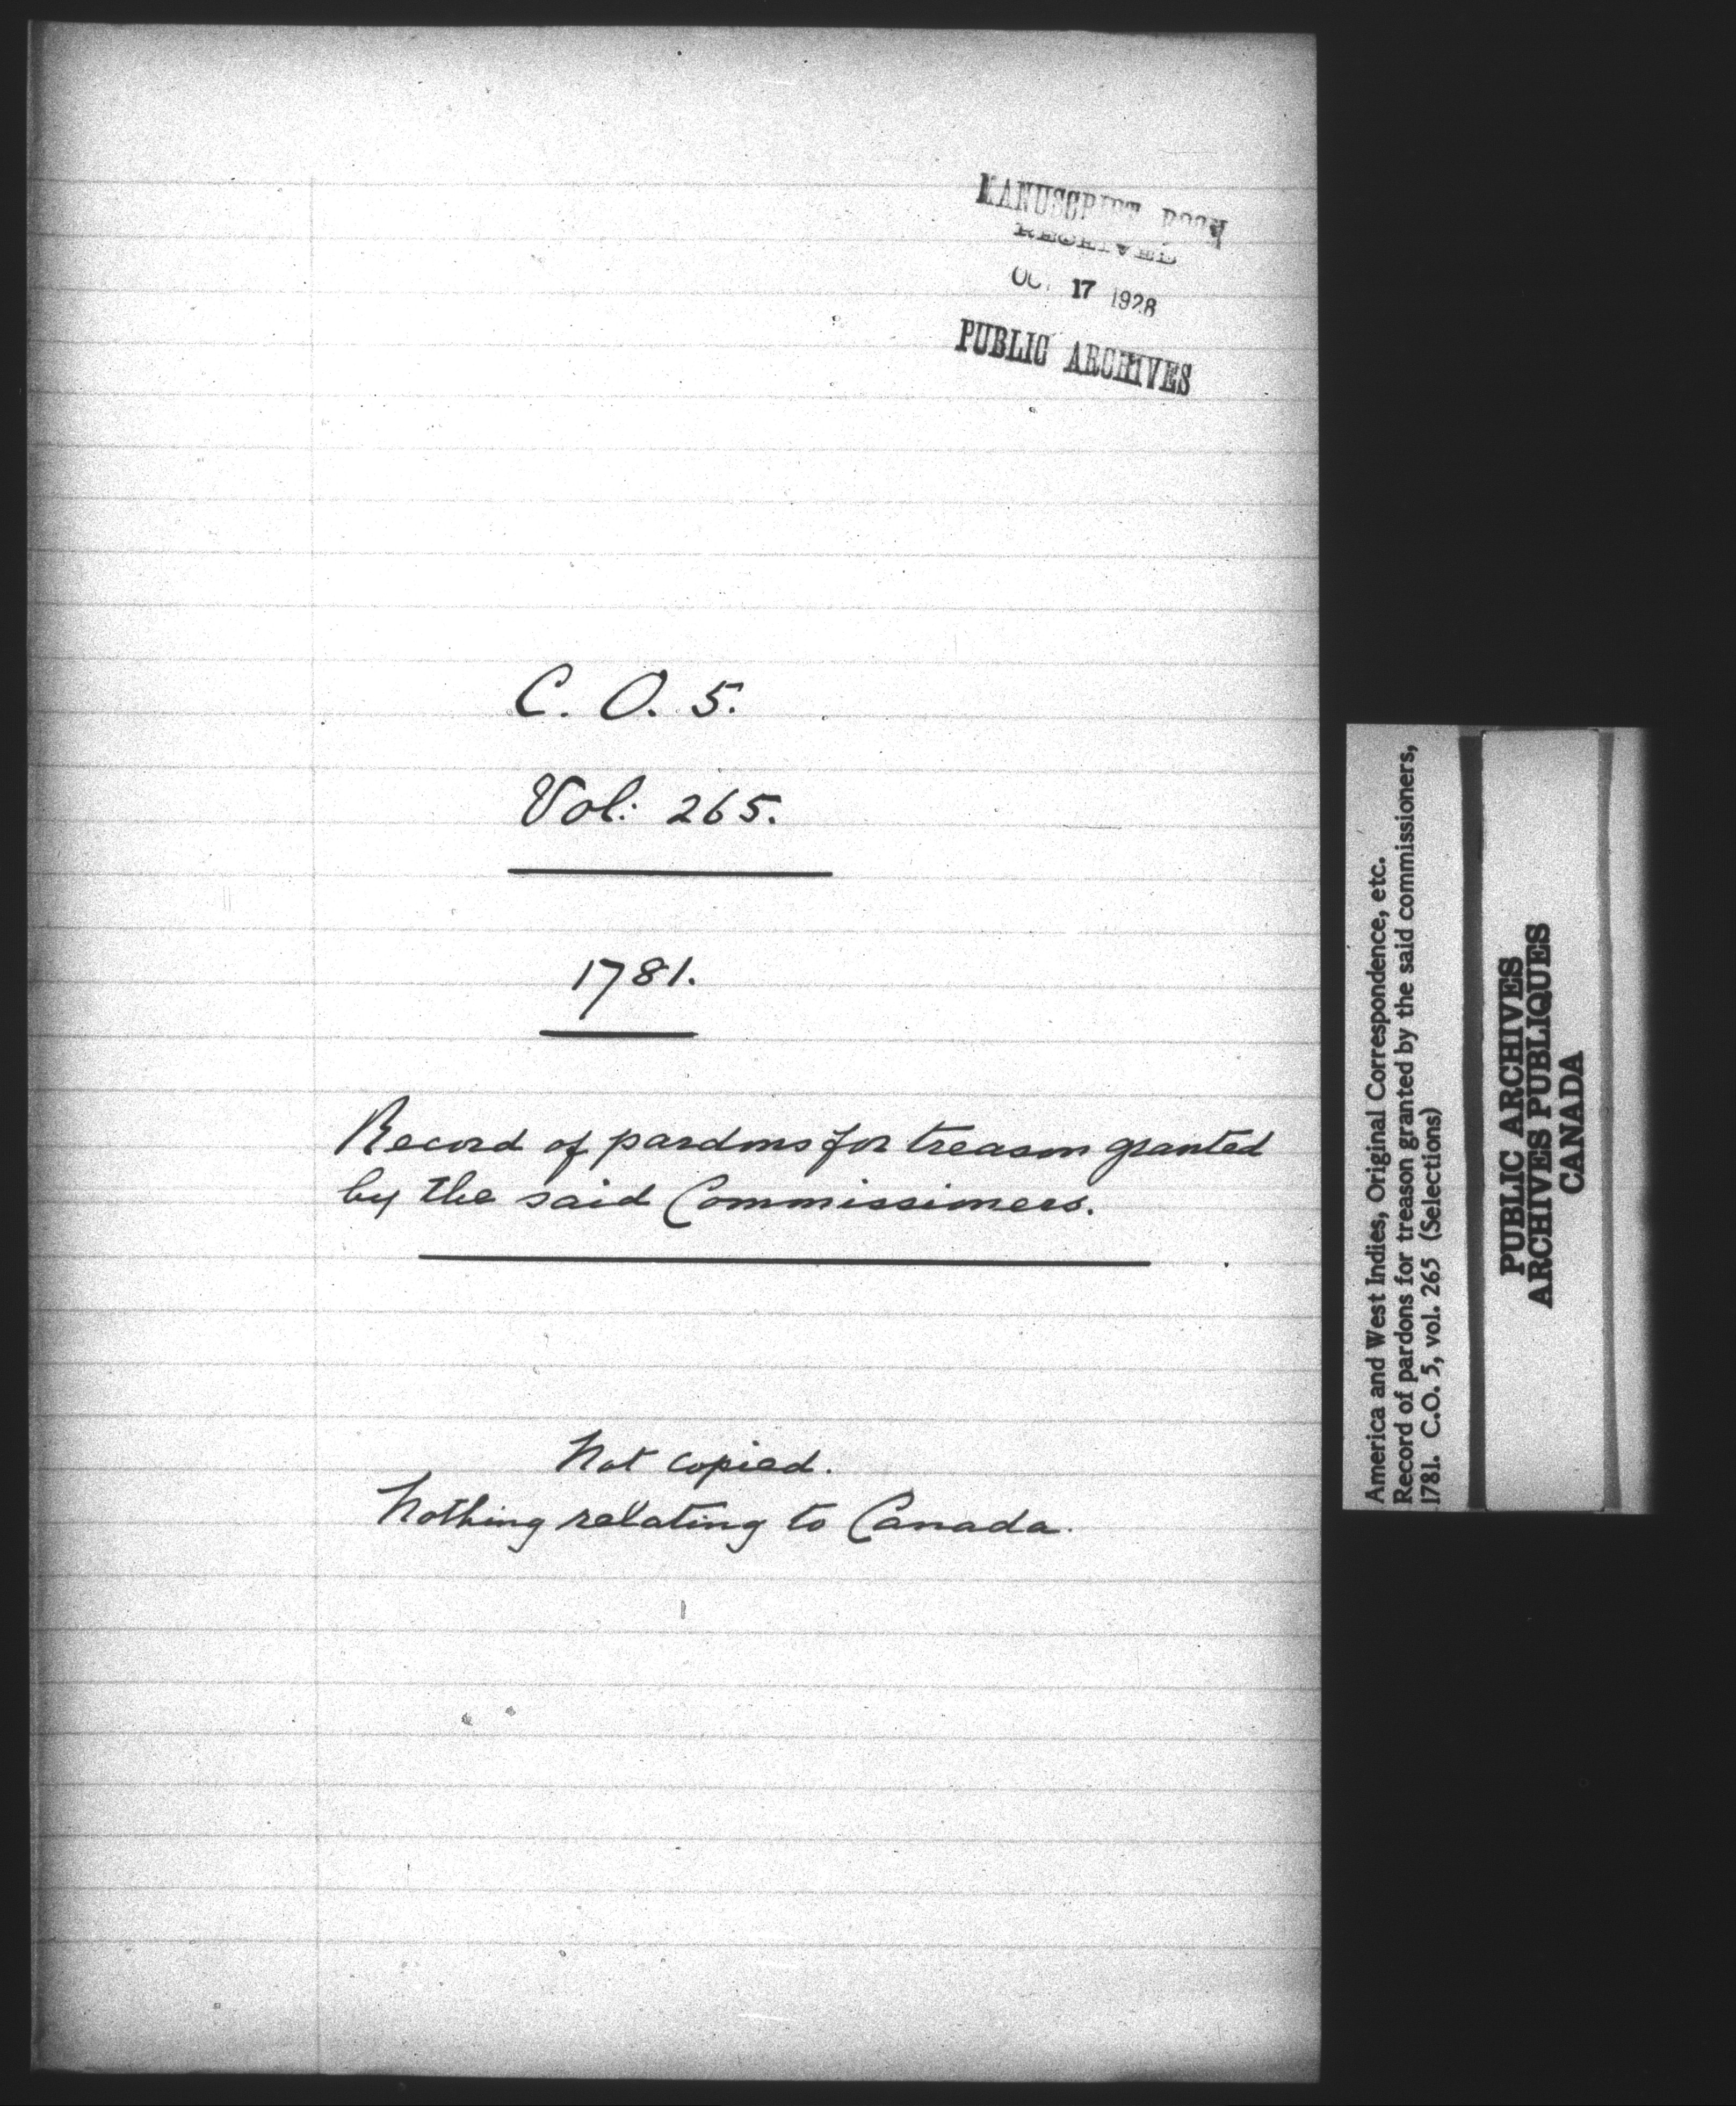 MANUSCRIPT ROOM
RECEIVED
OCT 17 1928
PUBLIC ARCHIVES
C. O. 5.
Vol: 265.
1781.
Record of pardons for treason granted
by the said Commissioners.
Not copied.
Nothing relating to Canada.
America and West Indies, Original Correspondence, etc.
Record of pardons for treason granted by the said commissioners,
1781. C.O. 5, vol. 265 (Selections)
PUBLIC ARCHIVES
ARCHIVES PUBLIQUES
CANADA